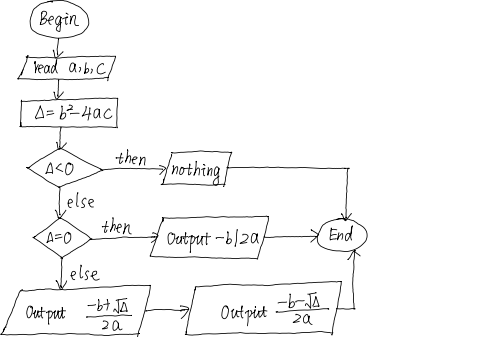 Begin
read a,b,c
Δ=b²-4ac
Δ<0
then
nothing
else
Δ=0
then
Output -b/2a
End
else
Output (-b+√Δ)/2a
Outpiut (-b-√Δ)/2a